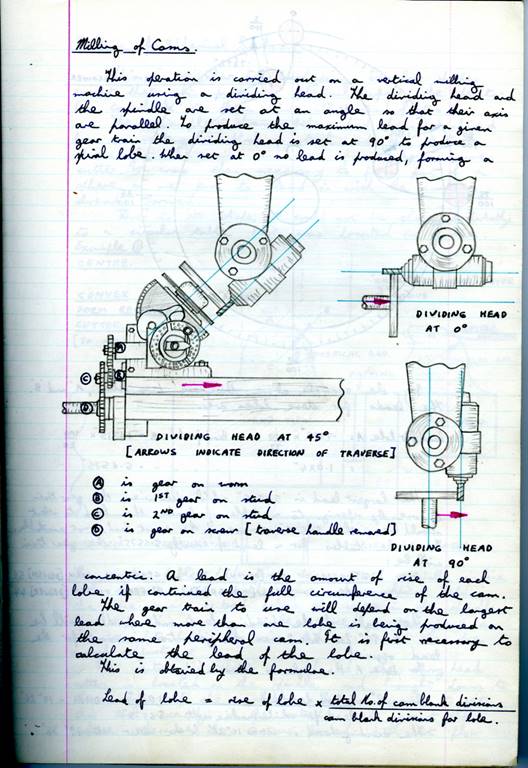 Milling of Cams.
This operation is carried out on a vertical milling
machine using a dividing head. The dividing head and
the spindle are set at an angle so that their axis
are parallel. To produce the maximum lead for a given
gear train the dividing head is set at 90° to produce a
spiral lobe. When set at 0° no lead is produced, forming a
DIVIDING HEAD
AT 0°
A
B
C
D
DIVIDING HEAD AT 45°
[ARROWS INDICATE DIRECTION OF TRAVERSE]
A is gear on worm
B is 1ST gear on stud
C is 2ND gear on stud
D is gear on screw [traverse handle removed]
DIVIDING HEAD
AT 90°
concentric. A lead is the amount of rise of each
lobe if continued the full circumference of the cam.
The gear train to use will depend on the largest
lead where more than one lobe is being produced on
the same peripheral cam. It is first necessary to
calculate the lead of the lobe.
This is obtained by the formulae.
Lead of lobe = rise of lobe x total No. of cam blank divisions
cam blank divisions for lobe.